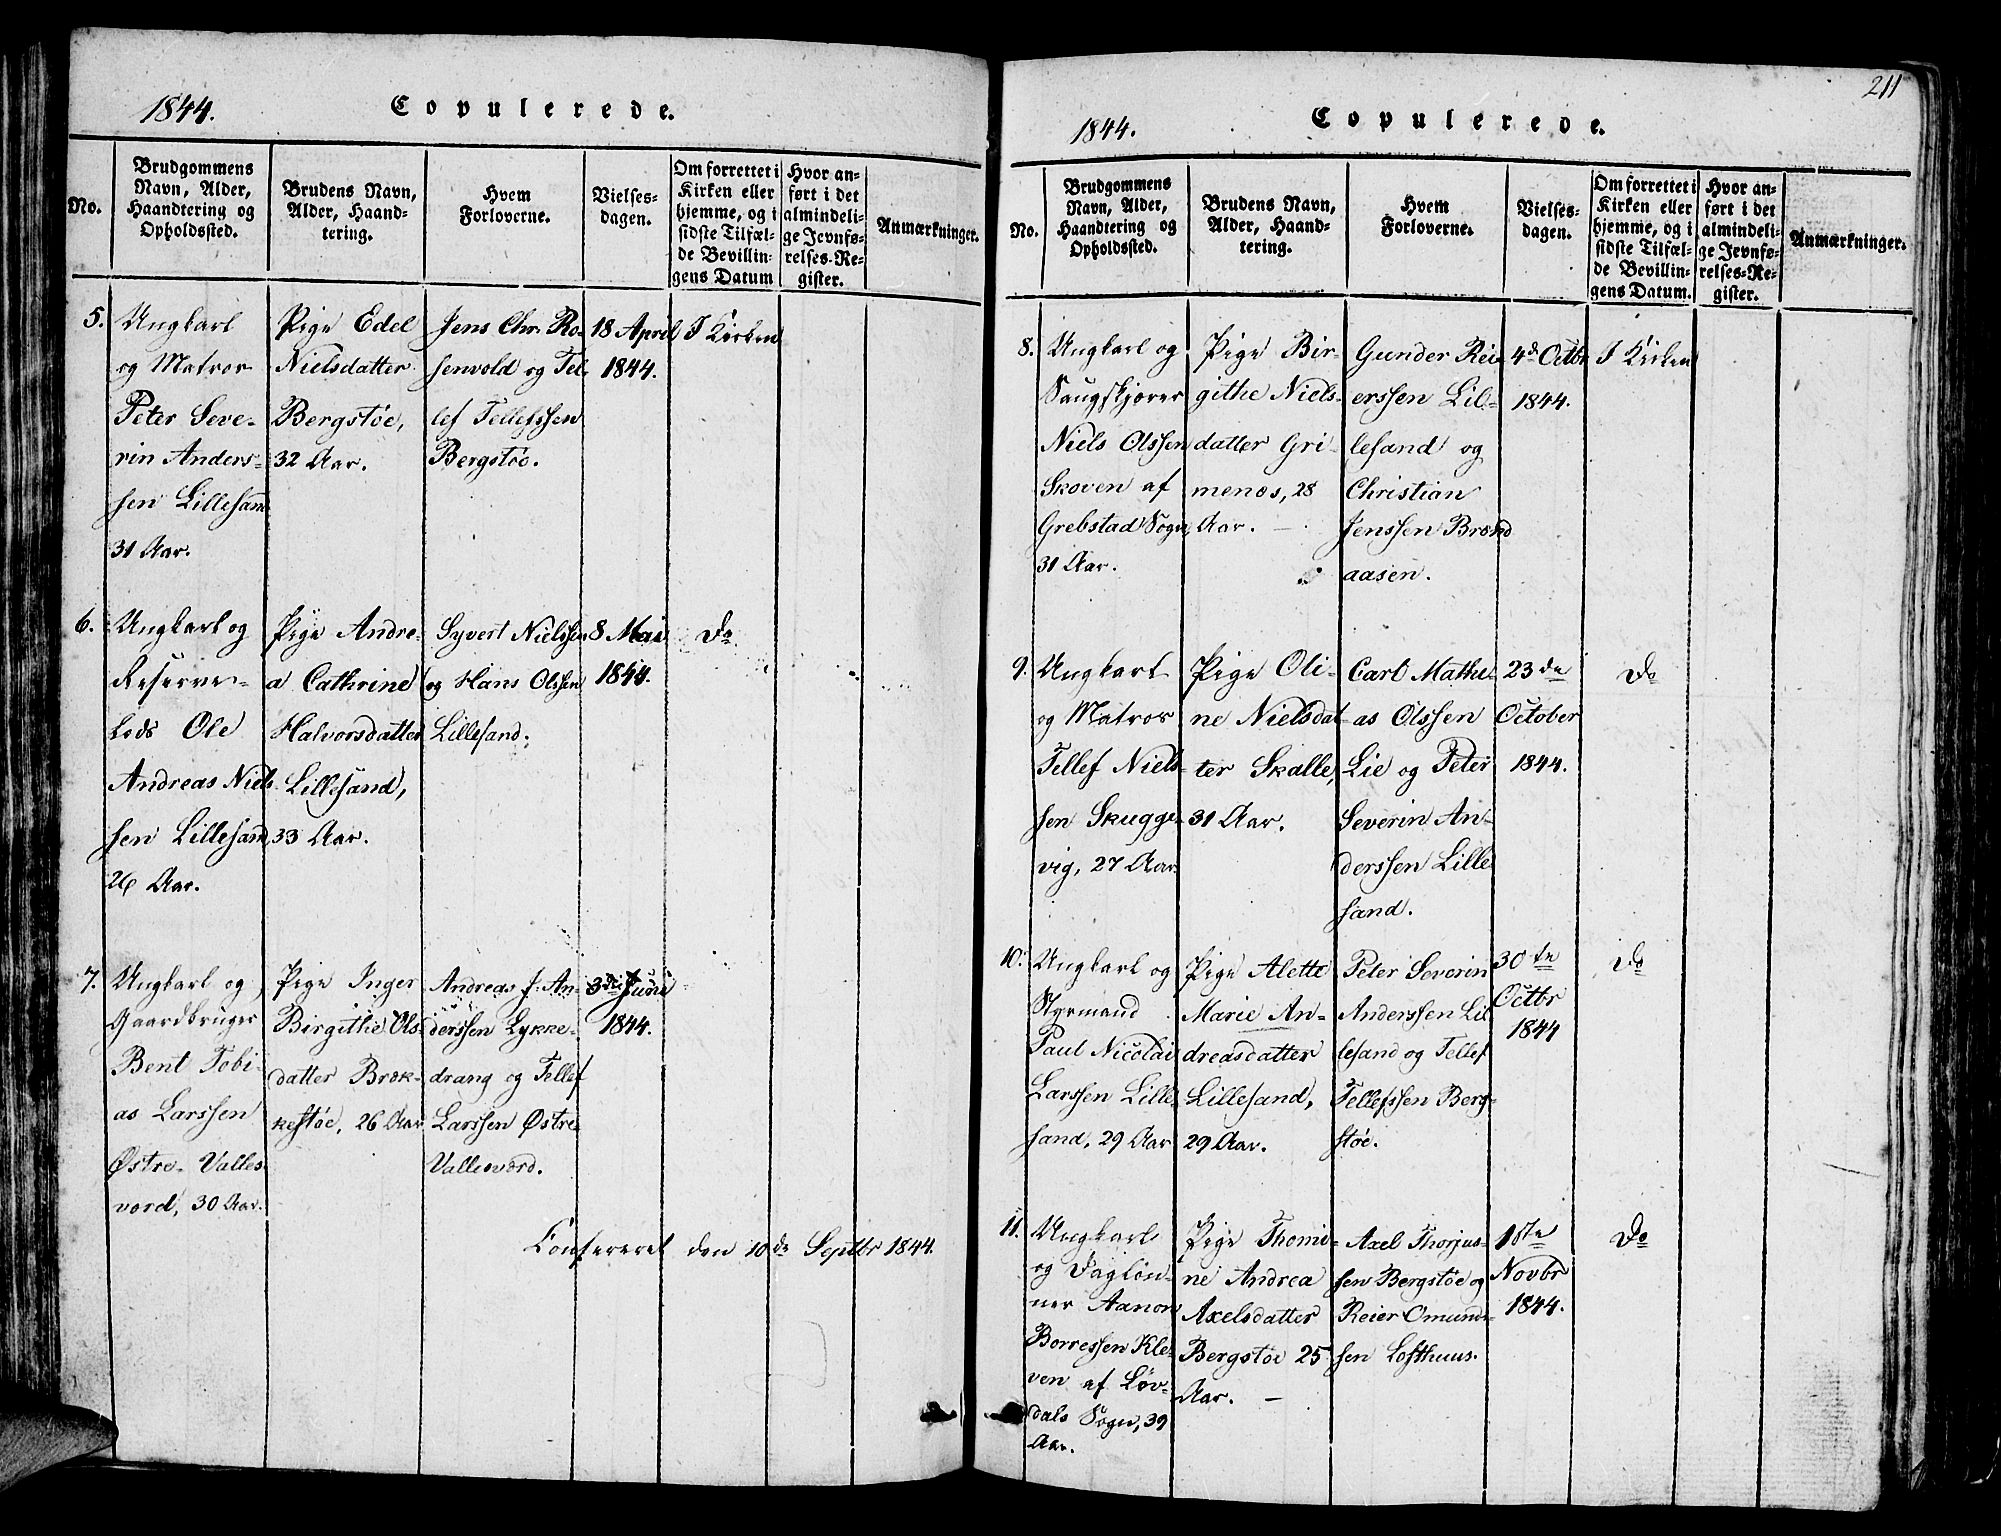 1844.
Copulerede.
No.
Brudgommens
Navn, Alder,
Haandtering og
Opholdssted.
Brudens Navn,
Alder, Haand-
tering.
Hvem
Forloverne.
Vielses-
dagen.
Om forrettet i
Kirken eller
hjemme, og i
sidste Tilfæl-
de Bevillin-
gens Datum
Hvor an-
ført i det
almindeli-
ge Jevnfø-
relses-Re-
gister.
Anmærkninger.
5.
Ungkarl
og Matros
Peter Seve-
rin Anders-
sen Lillesand
31 Aar.
Pige Edel
Nielsdatter
Bergstøe,
32 Aar.
Jens Chr. Ro-
senvold og Tel-
lef Tellefssen
Bergstøe.
18 April
1844.
I Kirken
6.
Ungkarl og
Reserve-
Lods Ole
Andreas Niels
sen Lillesand
26 Aar.
Pige Andre-
a Cathrine
Halvorsdatter
Lillesand,
33 Aar.
Syvert Nielssen
og Hans Olssen
Lillesand.
8 Mai
1844.
Do
7.
Ungkarl og
Gaardbruger
Bent Tobi-
as Larssen
Østre- Valles
vord, 30 Aar.
Pige Inger
Birgithe Ols-
datter Bræk-
kestøe, 26 Aar
Andreas J. An-
derssen Lykke-
drang og Tellef
Larssen Østre
Vallesvord.
3die Juni
1844.
Confereret den 10de Septbr 1844.
211
1844.
Copulerede.
No.
Brudgommens
Navn, Alder,
Haandtering og
Opholdssted.
Brudens Navn,
Alder, Haand-
tering.
Hvem
Forloverne.
Vielses-
dagen.
Om forrettet i
Kirken eller
hjemme, og i
sidste Tilfæl-
de Bevillin-
gens Datum.
Hvor an-
ført i det
almindeli-
ge Jevnfø-
relses-Re-
gister.
Anmærkninger.
8.
Ungkarl og
Saugskjærer
Niels Olssen
Skoven af
Grebstad Sogn,
31 Aar.
Pige Bir-
githe Niels-
datter Gri-
menes, 28
Aar. -
Gunder Rei-
erssen Lil-
lesand og
Christian
Jenssen Brænd
aasen.
4de Octbr
1844.
I Kirken
9.
Ungkarl
og Matros
Tellef Niels-
sen Skugge-
vig, 27 Aar.
Pige Oli-
ne Nielsdat-
ter Skalle,
31 Aar.
Carl Mathi-
as Olssen
Lie og Peter
Severin An-
derssen Lille
sand.
23de
October
1844.
Do
10.
Ungkarl og
Styrmand
Paul Nicolai
Larssen Lille
sand, 29 Aar
Pige Alette
Marie An-
dreasdatter
Lillesand,
29 Aar.
Peter Severin
Anderssen Lil
lesand og Tellef
Tellefssen Berg-
støe.
30te
Octbr
1844
Do
11.
Ungkarl
og Dagløn-
ner Aanon
Borressen Kle-
ven af Løv-
dals Sogn, 39
Aar.
Pige Thomi-
ne Andrea
Axelsdatter
Bergstøe 25
Aar. -
Axel Thorjus-
sen Bergstøe og
Reier Omund-
sen Lofthuus.
1ste
Novbr
1844.
Do